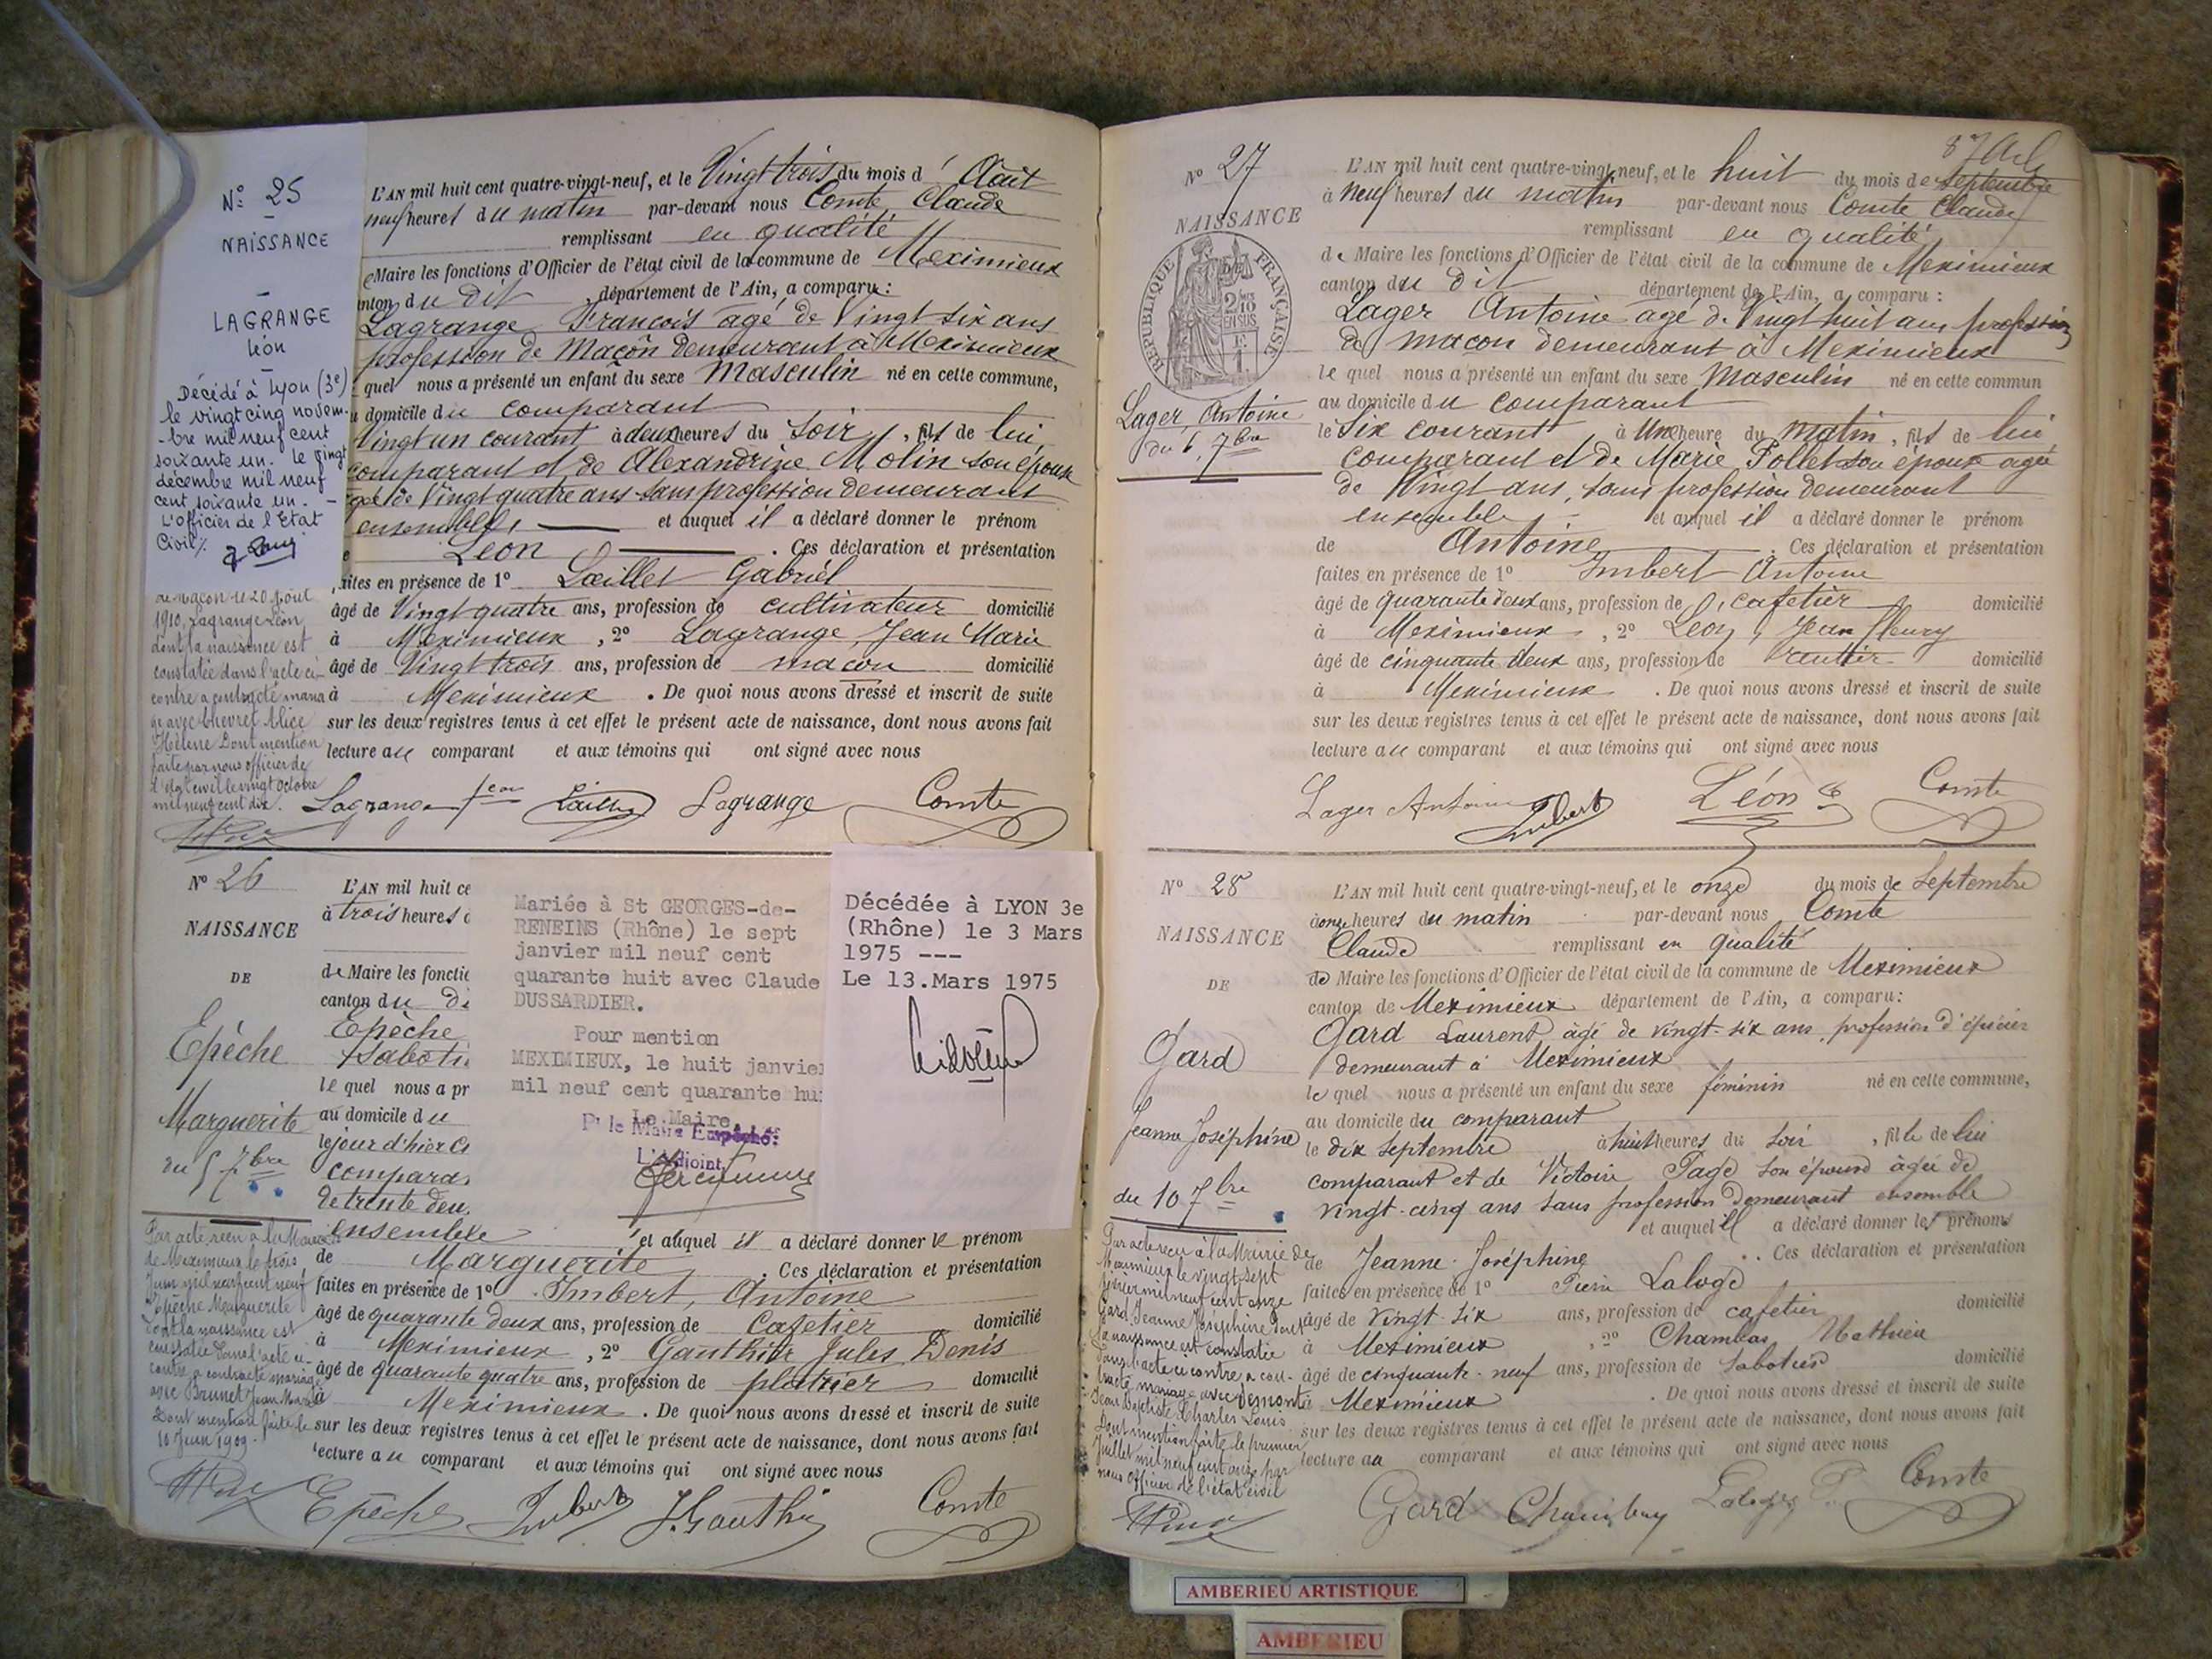 N° 25
NAISSANCE
LAGRANGE
Léon
Décédé à Lyon (3e)
le vingt cinq novem-
-bre mil neuf cent
soixante un. le vingt
décembre mil neuf
cent soixante un. -
L'officier de l'Etat
Civil
de Macon le 20 Août
1910, Lagrange Léon,
dont la naissance est
constatée dans l'acte ci-
contre a contracté maria
ge avec Chevret Alice
Hélène Dont mention
faite par nous officier de
l'état civil le vingt Octobre
mil neuf cent dix.
L'AN mil huit cent quatre-vingt-neuf, et le Vingt trois du mois d' Août
neuf heures du matin par-devant nous Comte Claude
remplissant en qualité
Maire les fonctions d'Officier de l'état civil de la commune de Meximieux
nton du dit, département de l'Ain, a comparu :
Lagrange François agé de Vingt six ans
profession de Maçon demeurant à Meximieux
quel nous a présenté un enfant du sexe Masculin né en cette commune,
u domicile du comparant
Vingt un courant à deux heures du soir, fils de lui
comparant et de Alexandrine Molin son épouse
agé de Vingt quatre ans sans profession demeurant
ensemble, et auquel il a déclaré donner le prénom
e Léon . Ces déclaration et présentation
aites en présence de 1° Lœillet Gabriel
âgé de Vingt quatre ans, profession de cultivateur domicilié
à Meximieux, 2° Lagrange Jean Marie
âgé de Vingt trois ans, profession de macon domicilié
à Meximieux . De quoi nous avons dressé et inscrit de suite
sur les deux registres tenus à cet effet le présent acte de naissance, dont nous avons fait
lecture au comparant et aux témoins qui ont signé avec nous
Lagrange Lagrange Comte
N° 26
NAISSANCE
DE
Epèche
Marguerite
du 5 7bre
Par acte reçu à la Mairie
de Meximieux le trois
Juin mil neuf cent neuf
Epèche Marguerite
dont la naissance est
constatée dans l'acte ci-
contre a contracté mariage
avec Brunet Jean Marie
Dont mention faite le
10 Juin 1909.
L'AN mil huit ce
à trois heures d
de Maire les fonctio
canton du di
Epèche
sabotie
le quel nous a pr
au domicile du
le jour d'hier c
compara
de trente deu
ensemble et auquel il a déclaré donner le prénom
de Marguerite . Ces déclaration et présentation
faites en présence de 1° Imbert, Antoine
âgé de quarante deux ans, profession de cafetier domicilié
à Meximieux, 2° Gauthier Jules Denis
âgé de quarante quatre ans, profession de platrier domicilié
à Meximieux . De quoi nous avons dressé et inscrit de suite
sur les deux registres tenus à cet effet le présent acte de naissance, dont nous avons fait
lecture au comparant et aux témoins qui ont signé avec nous
Epèche Imbert J. Gauthier Comte
Mariée à St GEORGES-de-
RENEINS (Rhône) le sept
janvier mil neuf cent
quarante huit avec Claude
DUSSARDIER.
Pour mention
MEXIMIEUX, le huit janvier
mil neuf cent quarante hui
Le Maire,
Pr le Maire Empêché:
L'Adjoint,
Décédée à LYON 3e
(Rhône) le 3 Mars
1975 ---
Le 13.Mars 1975
87
N° 27
NAISSANCE
DE
RÉPUBLIQUE FRANÇAISE
2/10 EN SUS
Lager, Antoine
du 6, 7bre
L'AN mil huit cent quatre-vingt-neuf, et le huit du mois de Septembre
à neuf heures du matin par-devant nous Comte Claude
remplissant en qualité
de Maire les fonctions d'Officier de l'état civil de la commune de Meximieux
canton du dit département de l'Ain, a comparu :
Lager Antoine agé de Vingt huit ans profession
de maçon demeurant à Meximieux
le quel nous a présenté un enfant du sexe Masculin né en cette commun
au domicile du comparant
le Six courant à Une heure du matin, fils de lui
comparant et de Marie Pollet son épouse agée
de Vingt ans, sans profession demeurant
ensemble et auquel il a déclaré donner le prénom
de Antoine . Ces déclaration et présentation
faites en présence de 1° Imbert Antoine
âgé de quarante deux ans, profession de cafetier domicilié
à Meximieux, 2° Léon, Jean fleury
âgé de cinquante deux ans, profession de rentier domicilié
à Meximieux . De quoi nous avons dressé et inscrit de suite
sur les deux registres tenus à cet effet le présent acte de naissance, dont nous avons fait
lecture au comparant et aux témoins qui ont signé avec nous
Lager Antoine Imbert Léon Comte
N° 28
NAISSANCE
DE
Gard
Jeanne Joséphine
du 10 7bre
Par acte reçu à la Mairie de
Meximieux le vingt sept
février mil neuf cent onze
Gard Jeanne Joséphine dont
la naissance est constatée
dans l'acte ci contre a con-
tracté mariage avec Demont
Jean Baptiste Charles Louis
Dont mention faite le premier
Juillet mil neuf cent onze par
nous Officier de l'état civil
L'AN mil huit cent quatre-vingt-neuf, et le onze du mois de Septembre
à onze heures du matin par-devant nous Comte
Claude remplissant en qualité
de Maire les fonctions d'Officier de l'état civil de la commune de Meximieux
canton de Meximieux département de l'Ain, a comparu:
Gard Laurent âgé de vingt-six ans, profession d'épicier
demeurant à Meximieux
le quel nous a présenté un enfant du sexe féminin né en cette commune,
au domicile du comparant
le dix Septembre à huit heures du soir, fille de lui
comparant et de Victoire Page son épouse âgée de
vingt-cinq ans sans profession demeurant ensemble
et auquel il a déclaré donner les prénoms
de Jeanne Joséphine . Ces déclaration et présentation
faites en présence de 1° Pierre Laloge
âgé de vingt-six ans, profession de cafetier domicilié
à Meximieux, 2° Chambas Mathieu
âgé de cinquante-neuf ans, profession de sabotier domicilié
à Meximieux . De quoi nous avons dressé et inscrit de suite
sur les deux registres tenus à cet effet le présent acte de naissance, dont nous avons fait
lecture au comparant et aux témoins qui ont signé avec nous
Gard Chambas Laloge P. Comte
AMBERIEU ARTISTIQUE
AMBERIEU